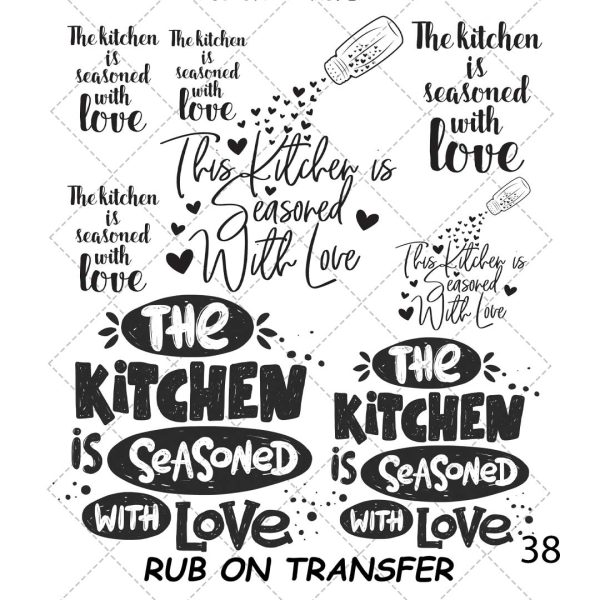 The kitchen
is
seasoned
with
love
The kitchen
is
seasoned
with
love
The kitchen
is
seasoned
with
love
This Kitchen is
Seasoned
With Love
The kitchen
is
seasoned
with
love
This Kitchen is
Seasoned
With Love
THE
KITCHEN
iS
SEASONED
WITH LOVE
THE
KITCHEN
iS
SEASONED
WITH LOVE
38
RUB ON TRANSFER